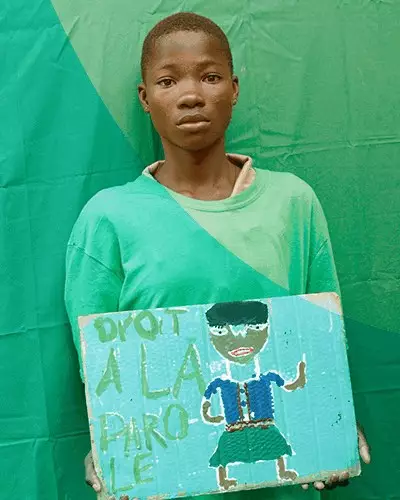 DROIT
A LA
PARO
LE